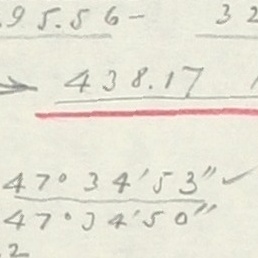 .95.56- 32
438.17
47° 34' 53"
47° 34' 50"
.2